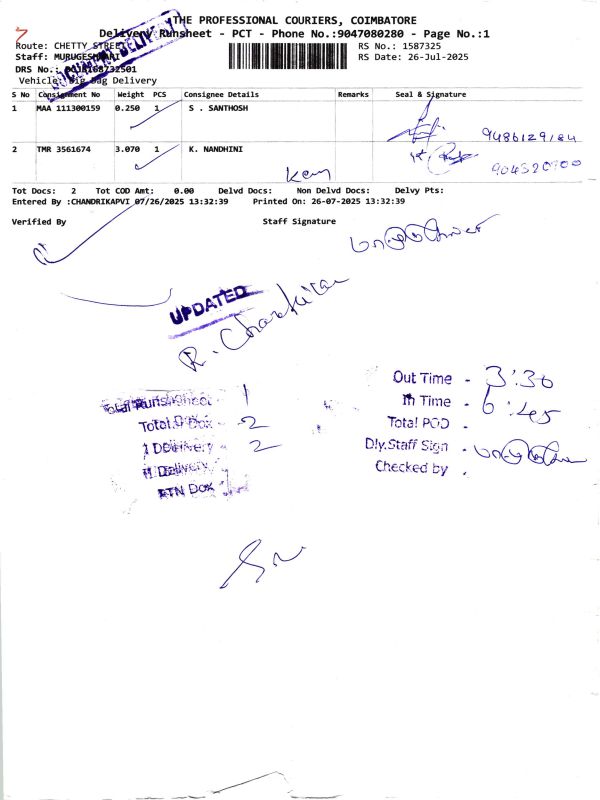 THE PROFESSIONAL COURIERS, COIMBATORE
7
Delivery Runsheet - PCT - Phone No.:9047080280 - Page No.:1
Route: CHETTY STREET
RS No.: 1587325
Staff: MURUGESHWARI
RS Date: 26-Jul-2025
DRS No.:
Vehicle: Big Bag Delivery
S No Consignment No Weight PCS Consignee Details Remarks Seal & Signature
1 MAA 111300159 0.250 1 S . SANTHOSH
2 TMR 3561674 3.070 1 K. NANDHINI
Tot Docs: 2 Tot COD Amt: 0.00 Delvd Docs: Non Delvd Docs: Delvy Pts:
Entered By :CHANDRIKAPVI 07/26/2025 13:32:39 Printed On: 26-07-2025 13:32:39
Verified By Staff Signature
UPDATED
Out Time - 3:30
In Time - 6:45
Total POD -
Dly.Staff Sign -
Checked by -
Total Runsheet - 1
Total Dox - 2
I Delivery - 2
II Delivery -
RTN Dox -